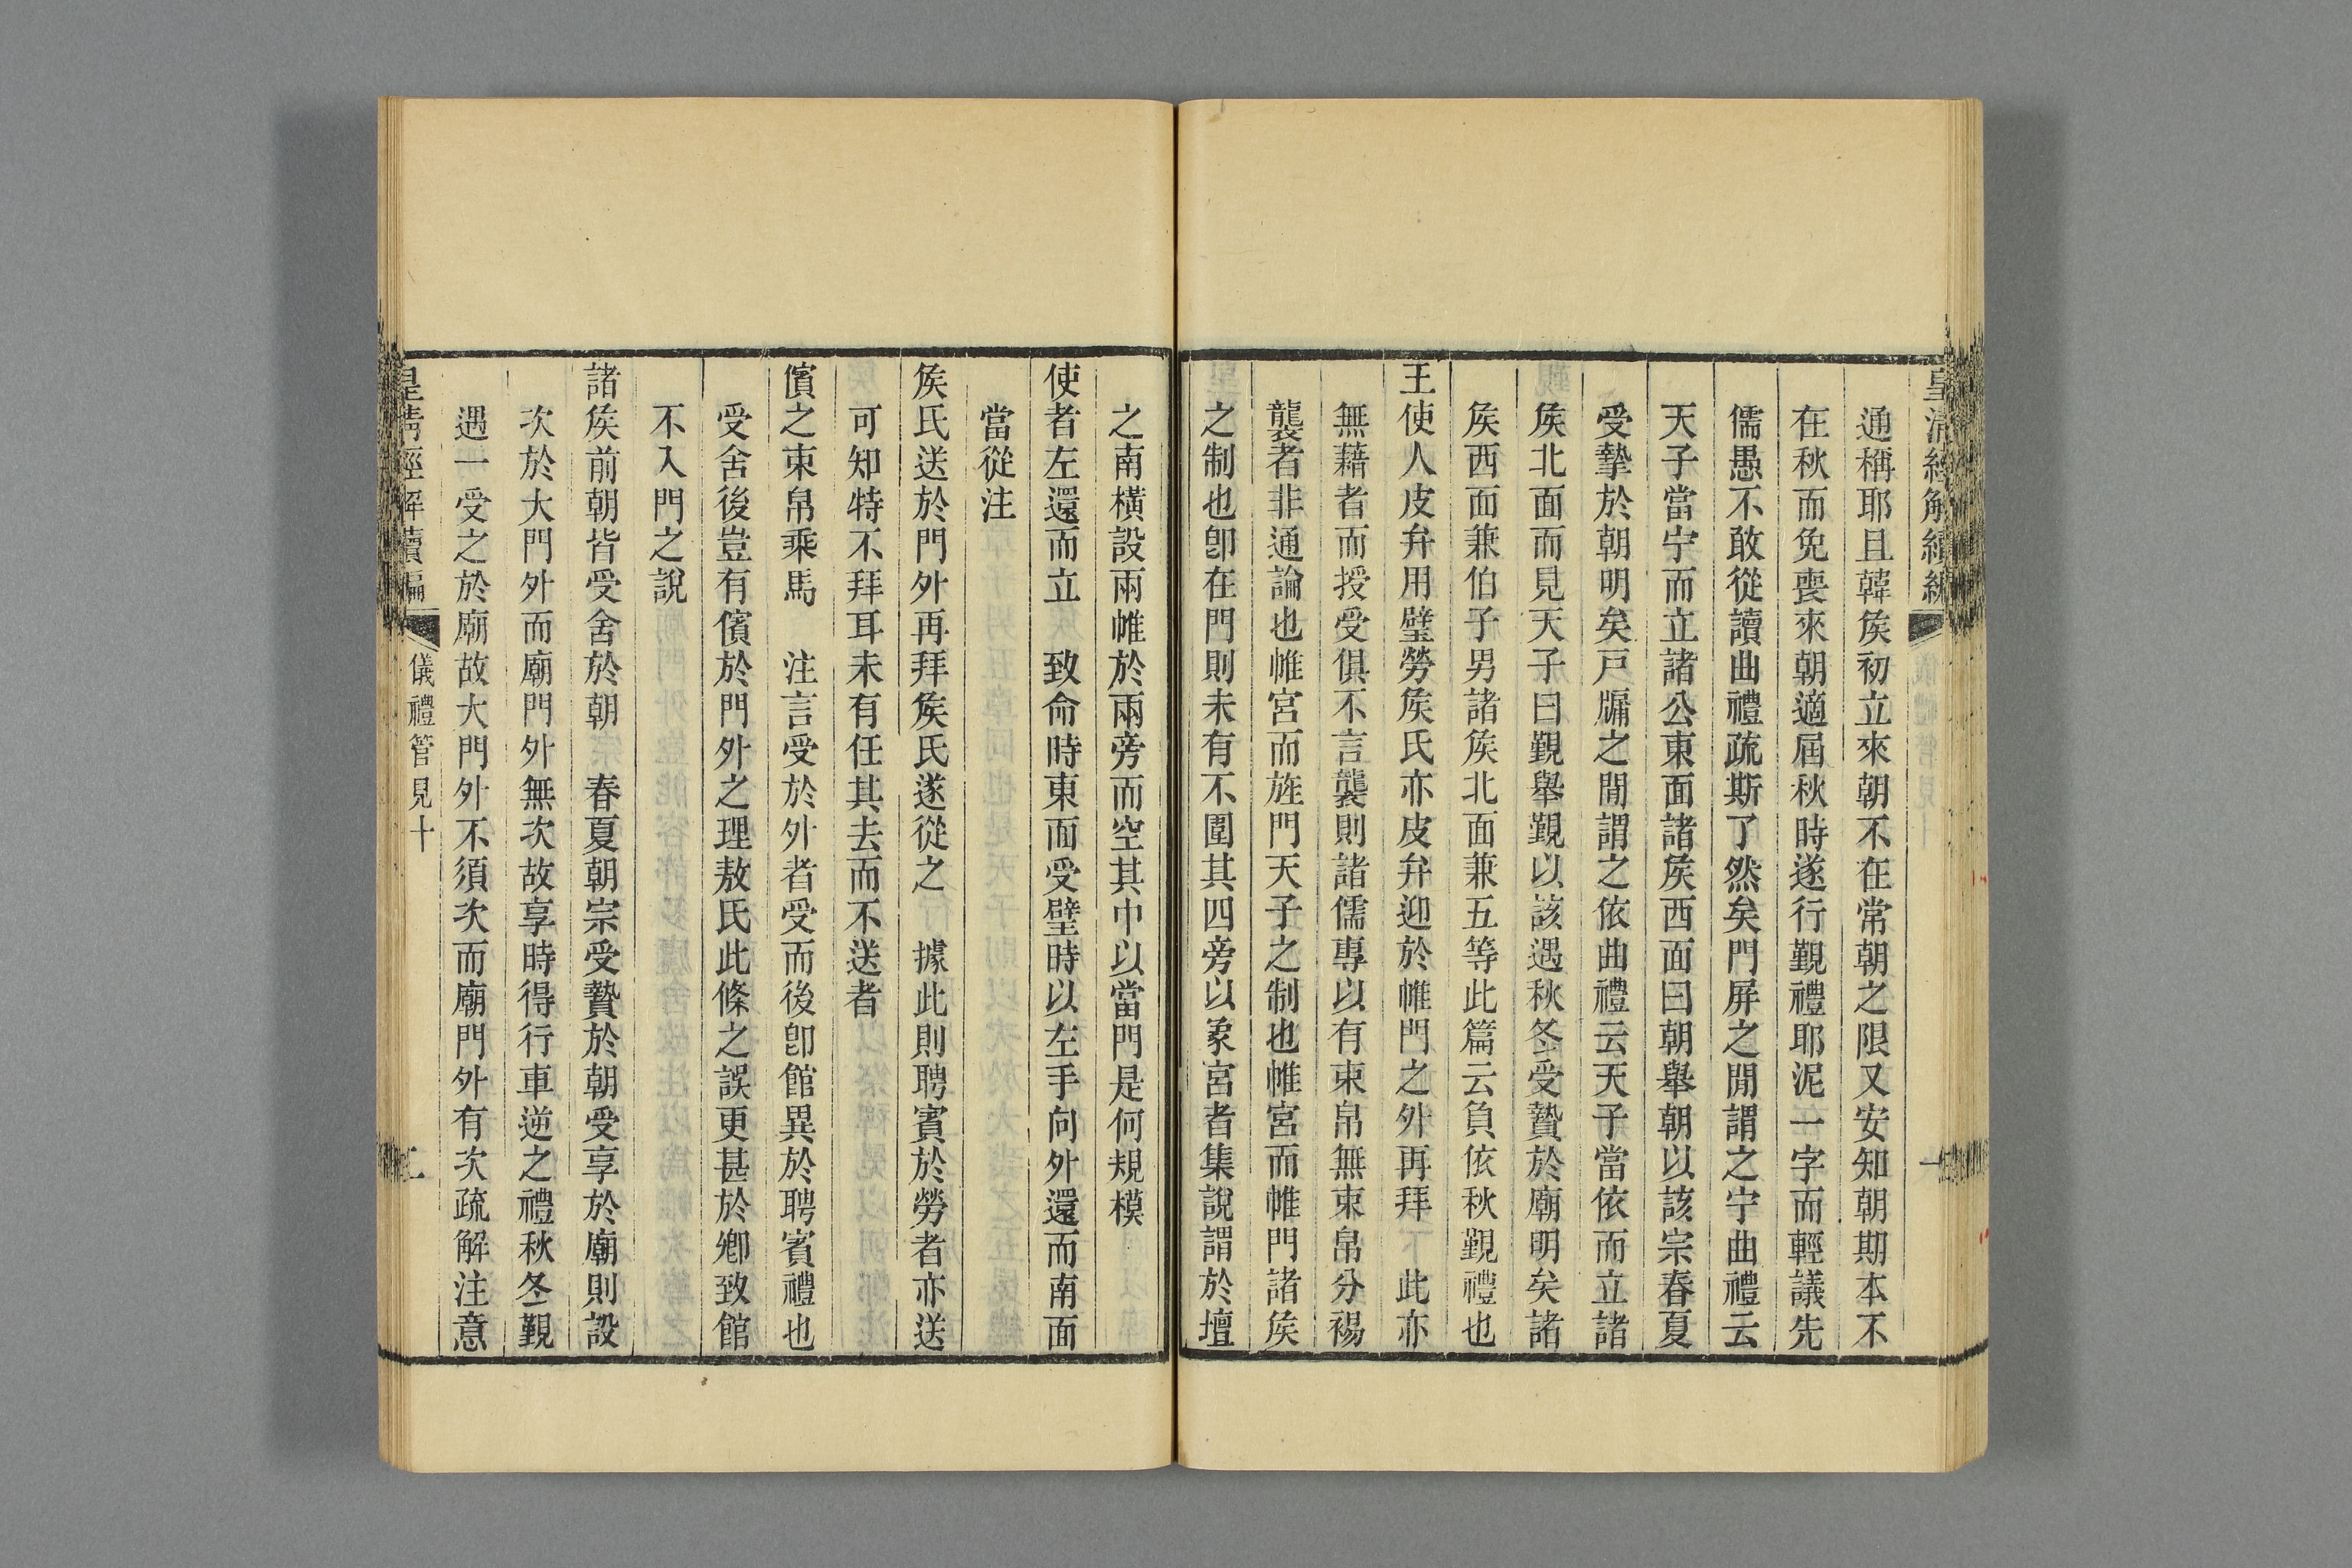 皇清經解續編
一
通稱耶且韓矦初立來朝不在常朝之限又安知朝期本不
在秋而免喪來朝適屆秋時遂行覲禮耶泥一字而輕議先
儒愚不敢從讀曲禮疏斯了然矣門屏之閒謂之宁曲禮云
天子當宁而立諸公東面諸矦西面曰朝舉朝以該宗春夏
受摯於朝明矣戸牖之閒謂之依曲禮云天子當依而立諸
矦北面而見天子曰覲舉覲以該遇秋冬受贄於廟明矣諸
矦西面兼伯子男諸矦北面兼五等此篇云負依秋覲禮也
王使人皮弁用璧勞矦氏亦皮弁迎於帷門之外再拜　此亦
無藉者而授受俱不言襲則諸儒專以有束帛無束帛分裼
襲者非通論也帷宮而旌門天子之制也帷宮而帷門諸矦
之制也卽在門則未有不圍其四旁以象宮者集說謂於壇
之南橫設兩帷於兩旁而空其中以當門是何規模
使者左還而立　致命時東面受璧時以左手向外還而南面
當從注
矦氏送於門外再拜矦氏遂從之　據此則聘賓於勞者亦送
可知特不拜耳未有任其去而不送者
儐之束帛乘馬　注言受於外者受而後卽館異於聘賓禮也
受舍後豈有儐於門外之理敖氏此條之誤更甚於卿致館
不入門之說
諸矦前朝皆受舍於朝　春夏朝宗受贄於朝受享於廟則設
次於大門外而廟門外無次故享時得行車逆之禮秋冬覲
遇一受之於廟故大門外不須次而廟門外有次疏解注意
皇清經解續編
儀禮管見十
二